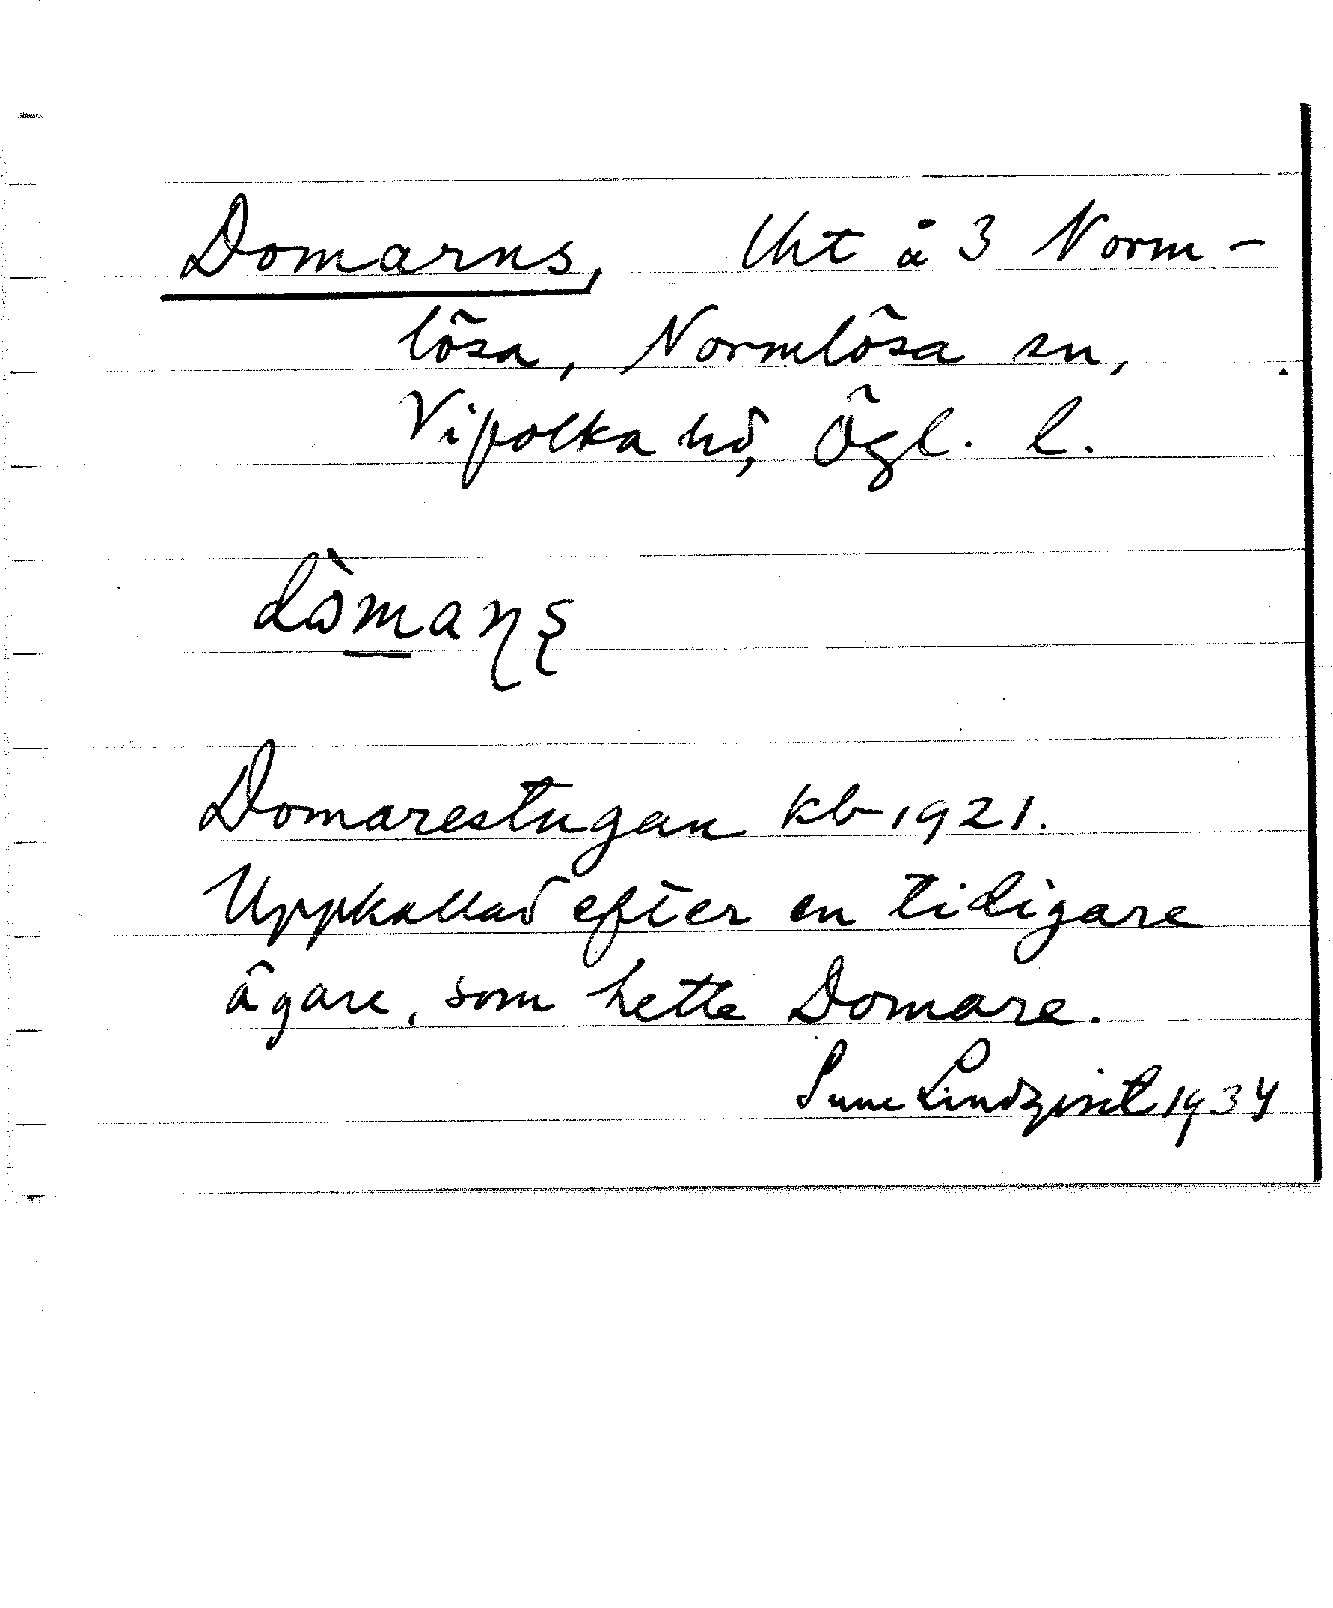 Domarns, lht å 3 Norm-
lösa, Normlösa sn,
Vifolka hd, Ögl. l.
Domarestugan kb 1921.
Uppkallad efter en tidigare
ägare, som hette Domare.
Sune Lindqvist 1934